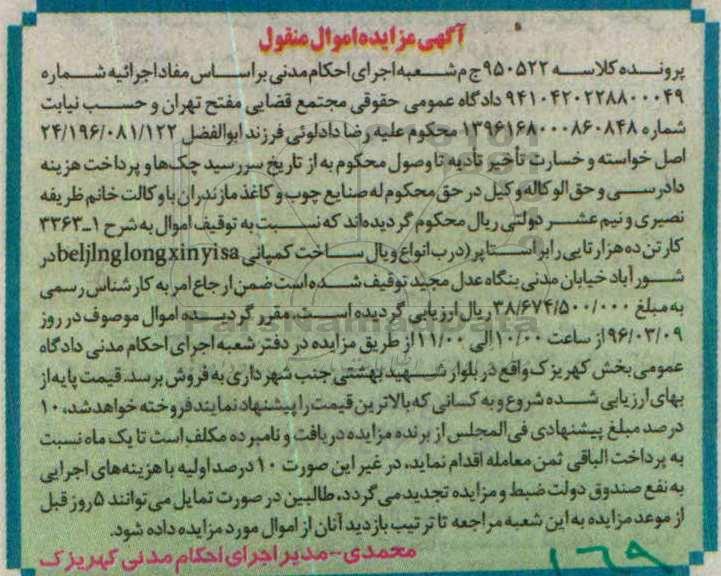 آگهی مزایده اموال منقول
پرونده کلاسه ۹۵۰۵۲۲ ج م شعبه اجرای احکام مدنی بر اساس مفاد اجرائیه شماره
۹۴۱۰۴۲۰۲۲۸۸۰۰۰۴۹ دادگاه عمومی حقوقی مجتمع قضایی مفتح تهران و حسب نیابت
شماره ۱۳۹۶۱۶۸۰۰۰۸۶۰۸۴۸ محکوم علیه رضا دادلوئی فرزند ابوالفضل ۲۴/۱۹۶/۰۸۱/۱۲۲
اصل خواسته و خسارت تأخیر تأدیه تا وصول محکوم به از تاریخ سررسید چک‌ها و پرداخت هزینه
دادرسی و حق الوکاله وکیل در حق محکوم له صنایع چوب و کاغذ مازندران با وکالت خانم ظریفه
نصیری و نیم عشر دولتی ریال محکوم گردیده‌اند که نسبت به توقیف اموال به شرح ۱-۳۳۶۳
کارتن ده هزارتایی رابر استاپر (درب انواع ویال ساخت کمپانی beljlnglongxinyisa در
شورآباد خیابان مدنی بنگاه عدل مجید توقیف شده است ضمن ارجاع امر به کارشناس رسمی
به مبلغ ۳۸/۶۷۴/۵۰۰/۰۰۰ ریال ارزیابی گردیده است. مقرر گردیده اموال موصوف در روز
۹۶/۰۳/۰۹ از ساعت ۱۰/۰۰ الی ۱۱/۰۰ از طریق مزایده در دفتر شعبه اجرای احکام مدنی دادگاه
عمومی بخش کهریزک واقع در بلوار شهید بهشتی جنب شهرداری به فروش برسد. قیمت پایه از
بهای ارزیابی شده شروع و به کسانی که بالاترین قیمت را پیشنهاد نمایند فروخته خواهد شد، ۱۰
درصد مبلغ پیشنهادی فی‌المجلس از برنده مزایده دریافت و نامبرده مکلف است تا یک ماه نسبت
به پرداخت الباقی ثمن معامله اقدام نماید، در غیر این صورت ۱۰ درصد اولیه با هزینه‌های اجرایی
به نفع صندوق دولت ضبط و مزایده تجدید می‌گردد. طالبین در صورت تمایل می‌توانند ۵ روز قبل
از موعد مزایده به این شعبه مراجعه تا ترتیب بازدید آنان از اموال مورد مزایده داده شود.
محمدی - مدیر اجرای احکام مدنی کهریزک
۱۶۹
ParsNamadData